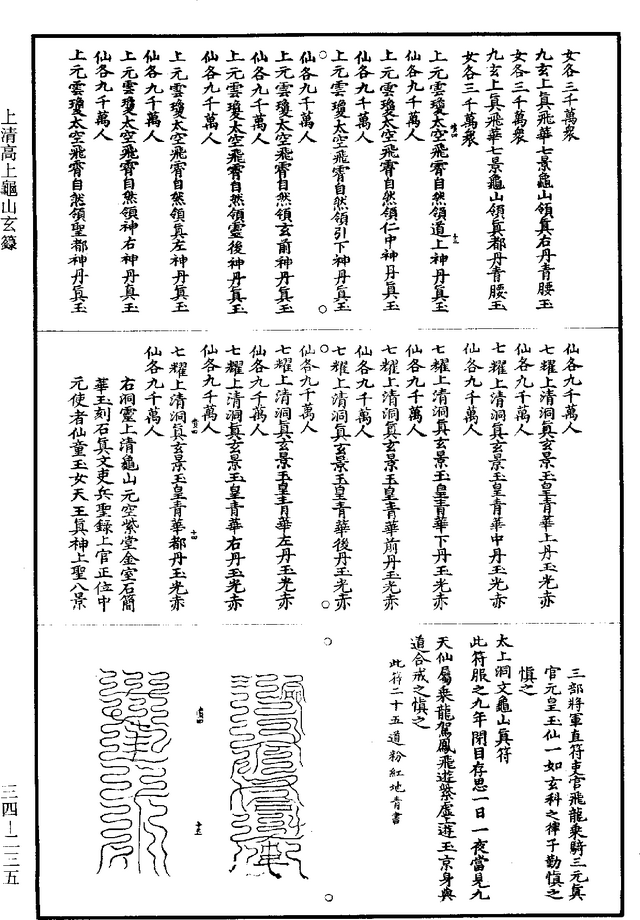 女各三千萬衆
九玄上真飛華七景龜山領真右丹青腰玉
女各三千萬衆
九玄上真飛華七景龜山領真都丹青腰玉
女各三千萬衆
上元雲瓊太空飛霄自然領道上神丹真玉
仙各九千萬人
上元雲瓊太空飛霄自然領仁中神丹真玉
仙各九千萬人
上元雲瓊太空飛霄自然領引下神丹真玉
仙各九千萬人
上元雲瓊太空飛霄自然領玄前神丹真玉
仙各九千萬人
上元雲瓊太空飛霄自然領靈後神丹真玉
仙各九千萬人
上元雲瓊太空飛霄自然領真左神丹真玉
仙各九千萬人
上元雲瓊太空飛霄自然領神右神丹真玉
仙各九千萬人
上元雲瓊太空飛霄自然領聖都神丹真玉
仙各九千萬人
七耀上清洞真玄景玉皇青華上丹玉光赤
仙各九千萬人
七耀上清洞真玄景玉皇青華中丹玉光赤
仙各九千萬人
七耀上清洞真玄景玉皇青華下丹玉光赤
仙各九千萬人
七耀上清洞真玄景玉皇青華前丹玉光赤
仙各九千萬人
七耀上清洞真玄景玉皇青華後丹玉光赤
仙各九千萬人
七耀上清洞真玄景玉皇青華左丹玉光赤
仙各九千萬人
七耀上清洞真玄景玉皇青華右丹玉光赤
仙各九千萬人
七耀上清洞真玄景玉皇青華都丹玉光赤
仙各九千萬人
右洞靈上清龜山元空紫堂金室石簡
華玉刻石真文吏兵聖錄上官正位中
元使者仙童玉女天王真神上聖八景
三部將軍直符吏官飛龍乘騎三元真
官元皇玉仙一如玄科之律子勤慎之
慎之
太上洞文龜山真符
此符服之九年閉目存思一日一夜當見九
天仙屬乘龍駕鳳飛遊紫虛上遊玉京身與
道合戒之慎之
此符二十五道粉紅地青書
十三
十四
十五
上清高上龜山玄籙
三四—二三五